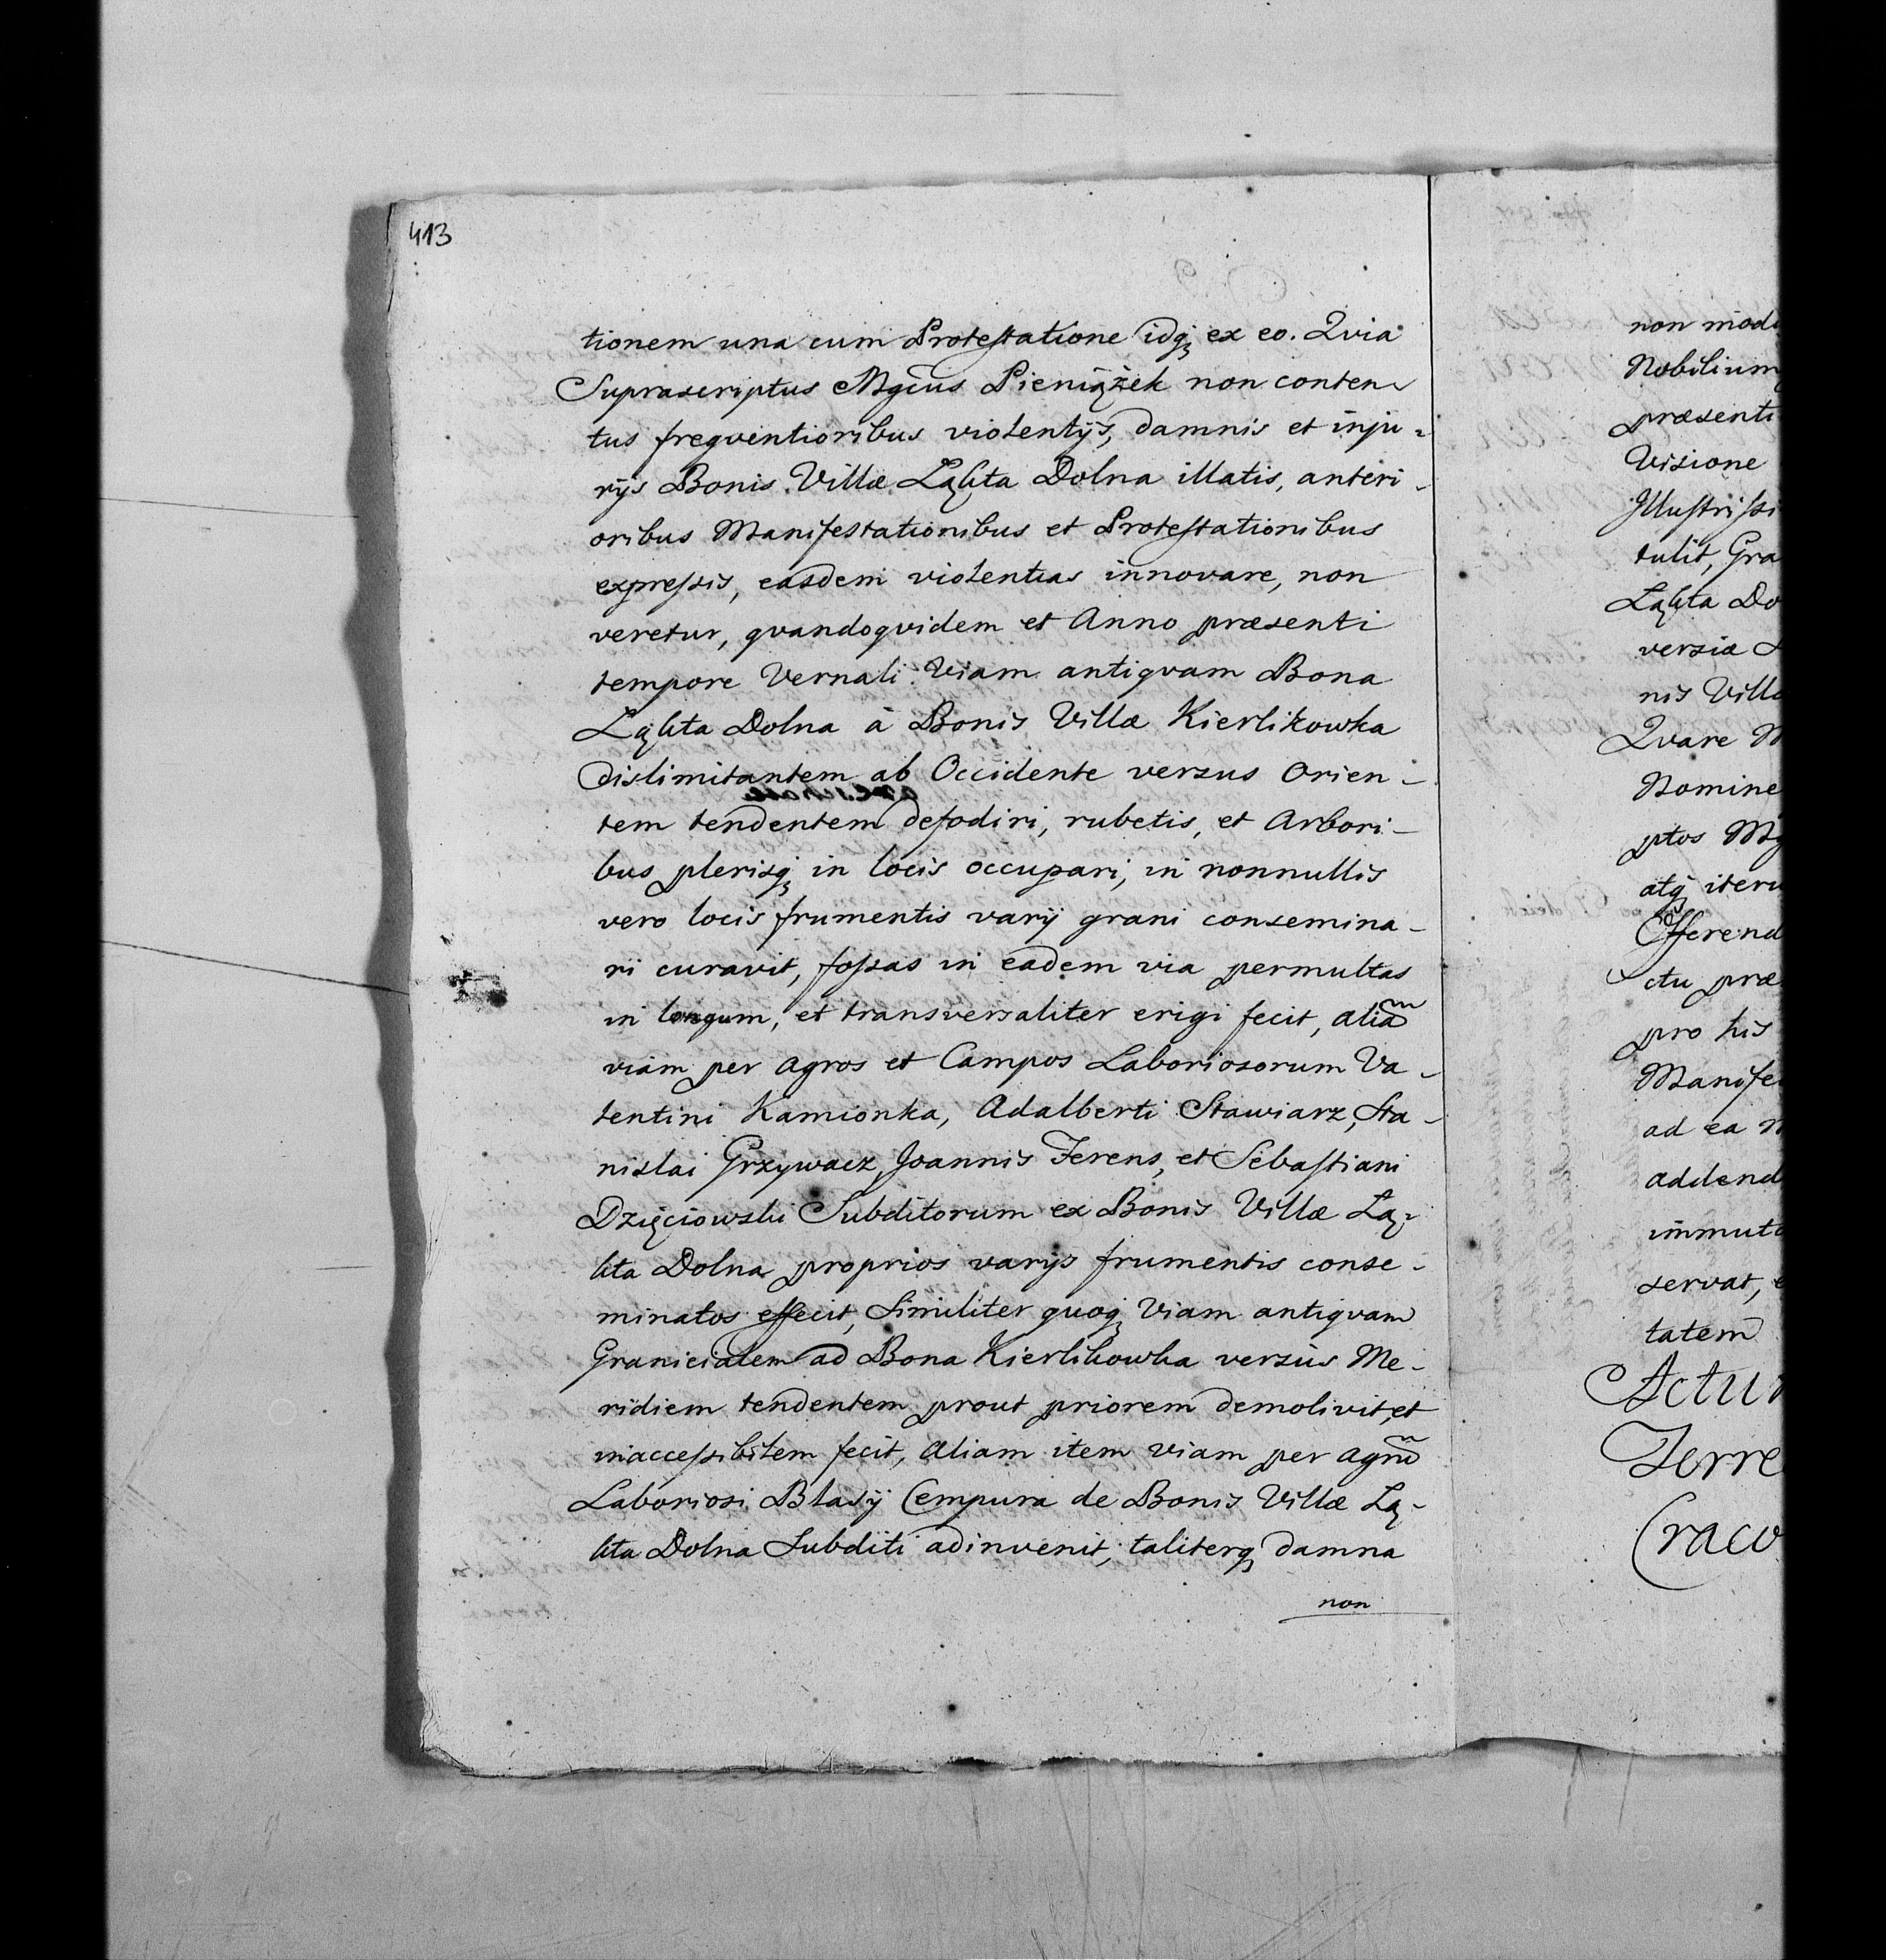 413
tionem una cum Protestatione idq₃ ex eo. Qvia
Suprascriptus Mgcus Pieniążek non conten-
tus freqventioribus violentijs, damnis et inju-
rijs Bonis Villæ Łąkta Dolna illatis, anteri-
oribus Manifestationibus et Protestationibus
expressis, easdem violentias innovare, non
veretur, qvandoqvidem et Anno præsenti
tempore Vernali Viam antiqvam Bona
Łąkta Dolna à Bonis Villæ Kierlikowka
dislimitantem ab Occidente versus Orien-
tem tendentem defodiri, rubetis, et Arbori-
bus plerisq₃ in locis occupari, in nonnullis
vero locis frumentis varij grani consemina-
ri curavit, fossas in eadem via permultas
in longum, et transversaliter erigi fecit, aliam̃
viam per agros et Campos Laboriosorum Va-
lentini Kamionka, Adalberti Stawiarz, Sta-
nislai Grzywacz, Joannis Ferens, et Sebastiani
Dzięciowski Subditorum ex Bonis Villæ Łą-
kta Dolna proprios varijs frumentis conse-
minatos effecit, Similiter quoq₃ Viam antiqvam
Granicialem ad Bona Kierlikowka versus Me-
ridiem tendentem prout priorem demolivit, et
inaccessibilem fecit, Aliam item viam per agrũ
Laboriosi Blasij Cempura de Bonis Villæ Łą-
kta Dolna Subditi adinvenit, taliterq₃ damna
non
non mod
Nobilium
præsenti
Visione
Illustrissi
tulit, Gra
Łąkta Do
versiæ
nis Villæ
Qvare
Nomine
ptos Mg
atq₃ iteru
Offerend
ctu præ
pro his
Manifes
ad ea
addend
immuta
servat,
tatem
Actum
Terre
Craco